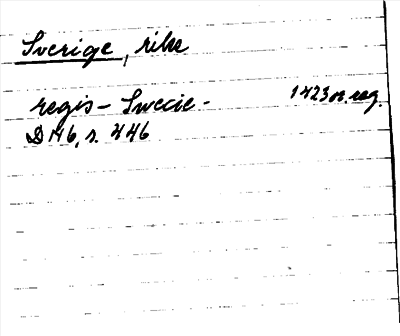 Sverige, rike
regis – Swecie – 1423 or. reg.
D 146, s. 446